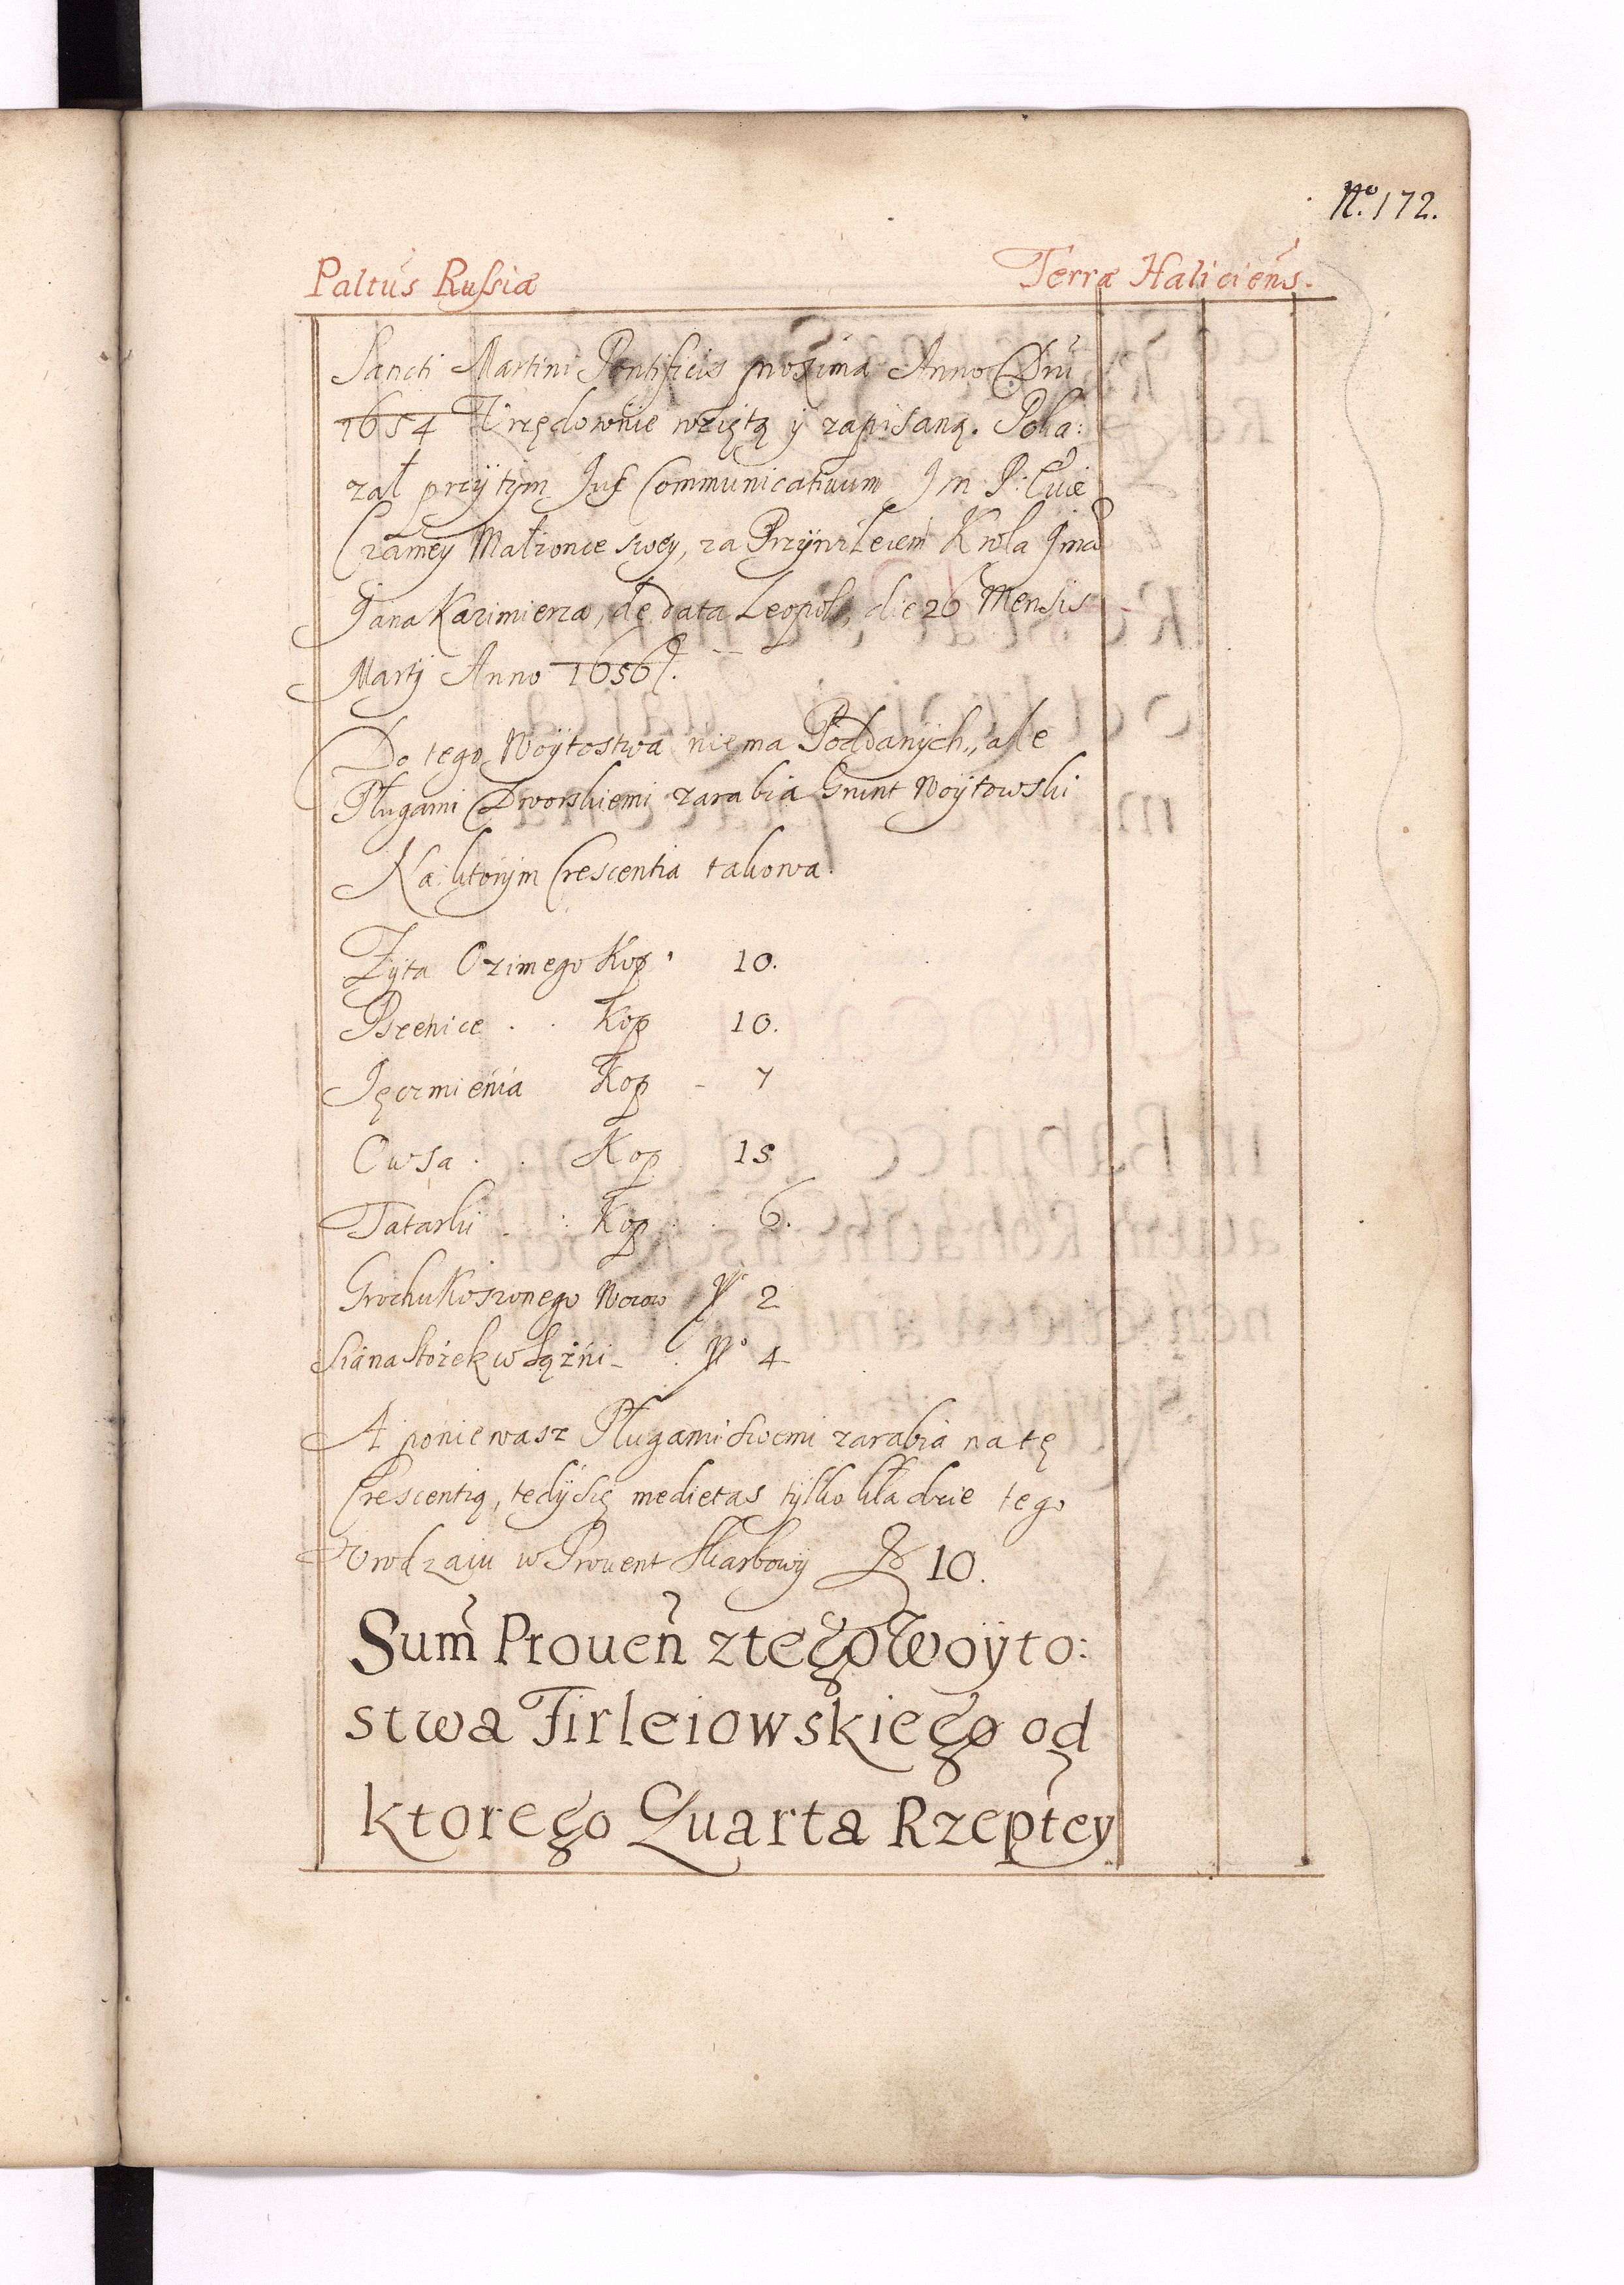 No. 172.
Paltus Russiæ Terræ Haliciens.
Sancti Martini Pontificis proxima Anno Dni
1654 Urzędownie wziętą y zapisaną. Poka:
zał przytym Jus Communicativum Jm P:
Małzonce swey, za Przywileiem Krola Jmci
Jana Kazimierza, de data Leopol, die 26 Mensis
Martij Anno 1656.
Do tego Woytostwa niema Poddanych, ale
Pługami Dworskiemi zarabia Grunt Woytowski
Na ktorym Crescentia takowa.
Zyta Ozimego Kop 10.
Pszenice . . Kop 10.
Jęczmienia Kop - 7
Owsa . . Kop 15
Tatarki . : Kop . . 6.
Grochu Koszonego Wozow No 2
Siana Stożek w Sążni - . No 4
A poniewasz Pługami swemi zarabia na tę
Crescentią, tedy się medietas tylko kładzie tego
Urodzaiu w Prouent Skarbowy 10.
Sum Prouen ztego Woyto:
stwa Firleiowskiego od
ktorego Quarta Rzeptey